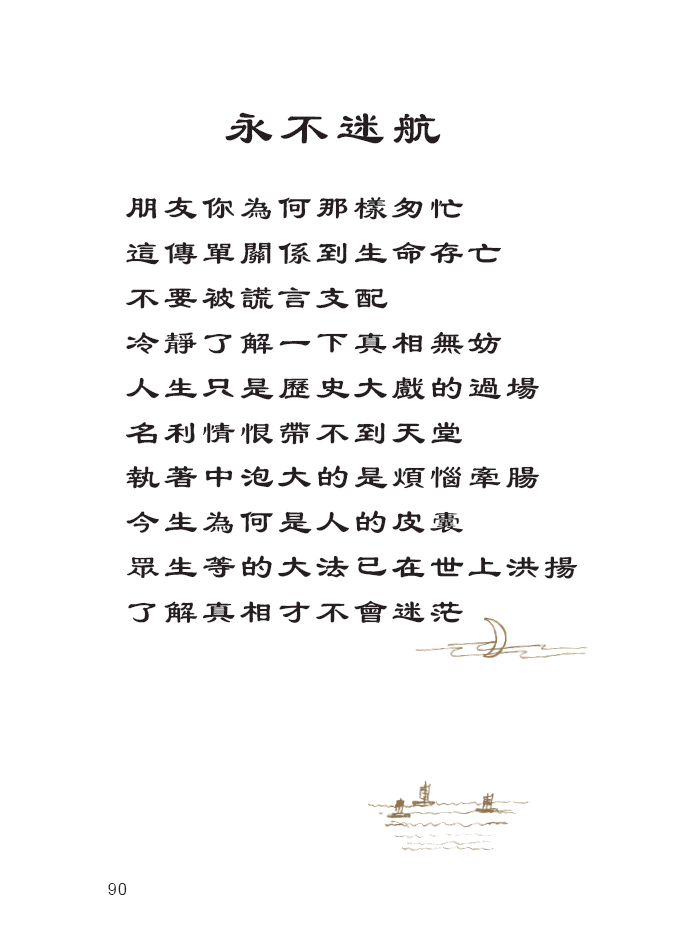 永不迷航
朋友你為何那樣匆忙
這傳單關係到生命存亡
不要被謊言支配
冷靜了解一下真相無妨
人生只是歷史大戲的過場
名利情恨帶不到天堂
執著中泡大的是煩惱牽腸
今生為何是人的皮囊
眾生等的大法已在世上洪揚
了解真相才不會迷茫
90